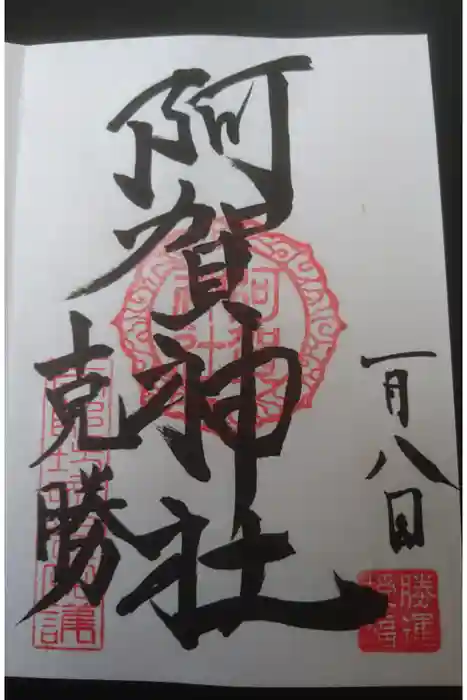 一月八日
阿賀神社
克勝
勝運
授福